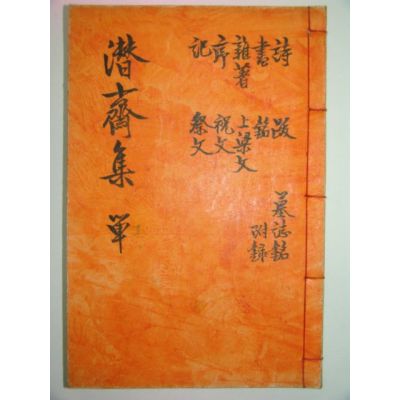 潜齋集 單
詩 跋
書 銘
雜著 上梁文
序 祝文
記 祭文
墓誌銘
附錄